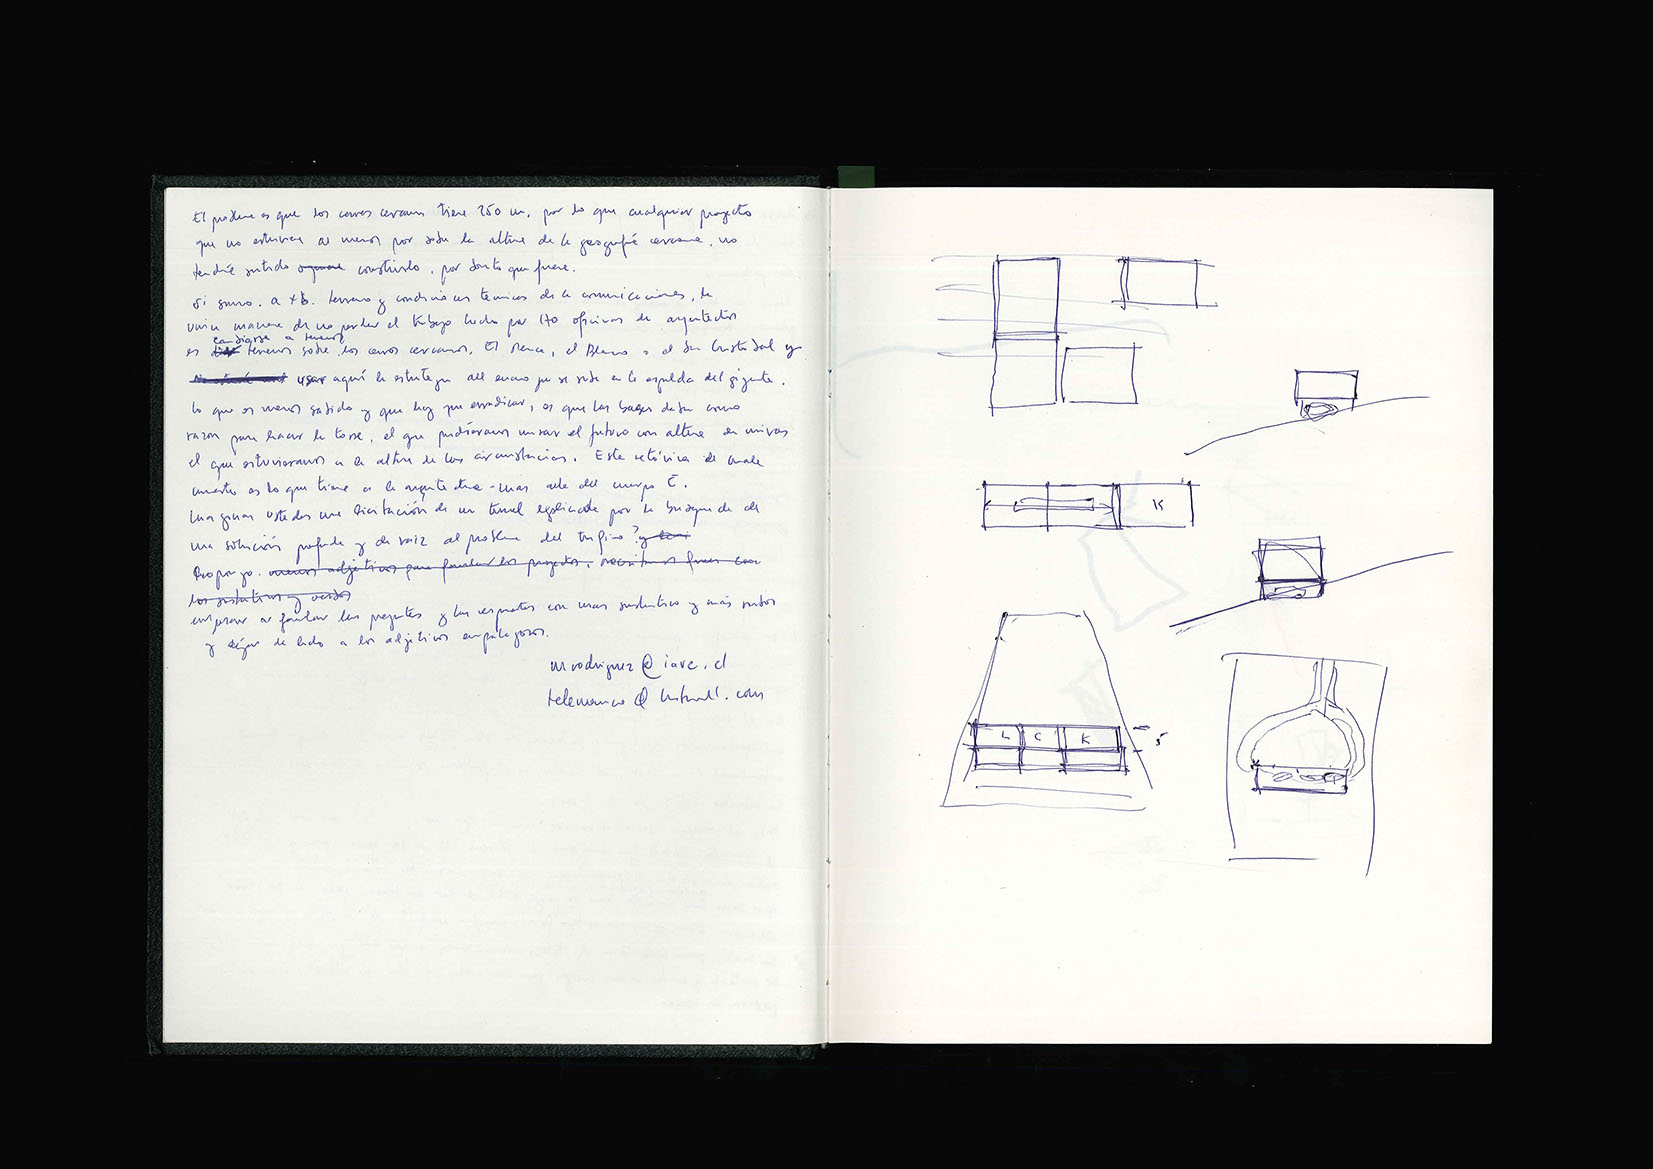 El problema es que los cerros cercanos tiene 250 m, por lo que cualquier proyecto
que no estuviera al menos por sobre la altura de la geografía cercana, no
tendría sentido construirlo, por bonito que fuera.
Si sumo, a + b. terreno y condiciones técnicas de la comunicaciones, la
única manera de no perder el trabajo hecho por 170 oficinas de arquitectos
cambiarse a terrenos
es terrenos sobre los cerros cercanos. El Renca, el Blanco o el San Cristóbal y
usar aquí la estrategia del enano que se sube en la espalda del gigante.
lo que es menos sabido y que hay que erradicar, es que las bases daban como
razón para hacer la torre, el que pudiéramos mirar el futuro con altura de miras
el que estuviéramos a la altura de las circunstancias. Esta retórica de
es lo que tiene a la arquitectura
Imaginan ustedes una licitación de un tunel explicada por la busqueda de
una solución profunda y de raíz al problema del tráfico?
Propongo. menos adjetivos para los proyectos,
los sustantivos y verbos
empezar a formular las preguntas y las respuestas con mas sustantivo y más verbos
y dejar de lado a los adjetivos empalagosos.
mrodriguez@iarc.cl
telemanco@hotmail.com
K
L C K
5